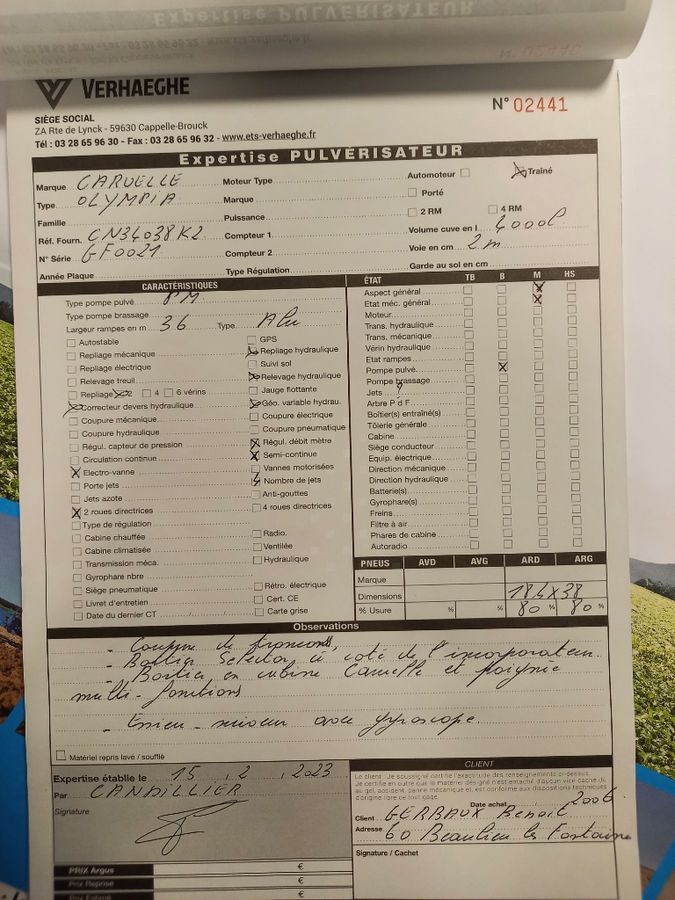 Expertise PULVÉRISATEUR
VERHAEGHE
N° 02441
SIÈGE SOCIAL
ZA Rte de Lynck - 59630 Cappelle-Brouck
Tél : 03 28 65 96 30 - Fax : 03 28 65 96 32 - www.ets-verhaeghe.fr
Expertise PULVÉRISATEUR
Marque CARUELLE Moteur Type Automoteur Traîné
Type OLYMPIA Marque Porté
Famille Puissance 2 RM 4 RM
Réf. Fourn. CN34038K2 Compteur 1 Volume cuve en l 4000l
N° Série GF0021 Compteur 2 Voie en cm 2 m
Année Plaque Type Régulation Garde au sol en cm
CARACTÉRISTIQUES
Type pompe pulvé. PM
Type pompe brassage
Largeur rampes en m 36 Type Alu
Autostable GPS
Repliage mécanique Repliage hydraulique
Repliage électrique Suivi sol
Relevage treuil Relevage hydraulique
Repliage 2 4 6 vérins Jauge flottante
Correcteur devers hydraulique Géo. variable hydrau.
Coupure mécanique Coupure électrique
Coupure hydraulique Coupure pneumatique
Régul. capteur de pression Régul. débit mètre
Circulation continue Semi-continue
Electro-vanne Vannes motorisées
Porte jets Nombre de jets 4
Jets azote Anti-gouttes
2 roues directrices 4 roues directrices
Type de régulation
Cabine chauffée Radio.
Cabine climatisée Ventilée
Transmission méca. Hydraulique
Gyrophare nbre
Siège pneumatique Rétro. électrique
Livret d'entretien Cert. CE
Date du dernier CT / / Carte grise
ÉTAT TB B M HS
Aspect général X
Etat méc. général X
Moteur
Trans. hydraulique
Trans. mécanique
Vérin hydraulique
Etat rampes
Pompe pulvé. X
Pompe brassage
Jets ?
Arbre P d F
Boîtier(s) entraîné(s)
Tôlerie générale
Cabine
Siège conducteur
Equip. électrique
Direction mécanique
Direction hydraulique
Batterie(s)
Gyrophare(s)
Freins
Filtre à air
Phares de cabine
Autoradio
PNEUS AVD AVG ARD ARG
Marque
Dimensions 18.4 X 38
% Usure % % 80 % 80 %
Observations
- Coupure de tronçons,
- Boitier Selector à coté de l'incorporateur
- Boitier en cabine Caruelle et poignée
multi-fonctions
- Essieu-suiveur avec gyroscope.
Matériel repris lavé / soufflé
Expertise établie le 15 / 2 / 2023
Par CANDILLIER
Signature
PRIX Argus €
Prix Reprise €
€
CLIENT
Le client : Je soussigné certifie l'exactitude des renseignements ci-dessus.
Je certifie en outre que le matériel désigné n'est entaché d'aucun vice caché dû
au gel, accident, panne mécanique et, est conforme aux dispositions techniques
d'origine lors de tout gage.
Date achat 2006
Client GERBAUX Benoit
Adresse 60 Beaulieu les Fontaine
Signature / Cachet